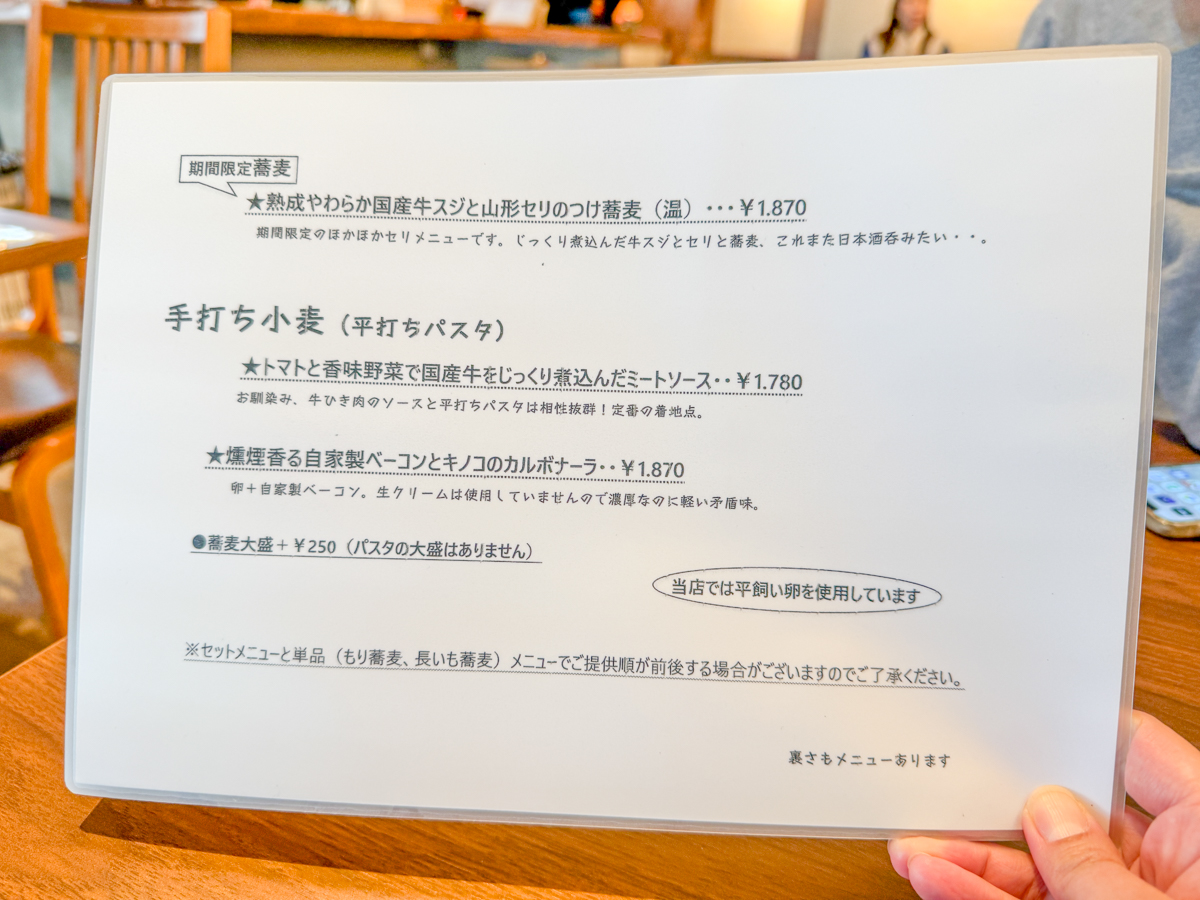 期間限定蕎麦
★熟成やわらか国産牛スジと山形セリのつけ蕎麦（温）・・・￥1.870
期間限定のほかほかセリメニューです。じっくり煮込んだ牛スジとセリと蕎麦、これまた日本酒呑みたい・・。
手打ち小麦（平打ちパスタ）
★トマトと香味野菜で国産牛をじっくり煮込んだミートソース・・￥1.780
お馴染み、牛ひき肉のソースと平打ちパスタは相性抜群！定番の着地点。
★燻煙香る自家製ベーコンとキノコのカルボナーラ・・￥1.870
卵＋自家製ベーコン。生クリームは使用していませんので濃厚なのに軽い矛盾味。
●蕎麦大盛＋￥250（パスタの大盛はありません）
当店では平飼い卵を使用しています
※セットメニューと単品（もり蕎麦、長いも蕎麦）メニューでご提供順が前後する場合がございますのでご了承ください。
裏さもメニューあります